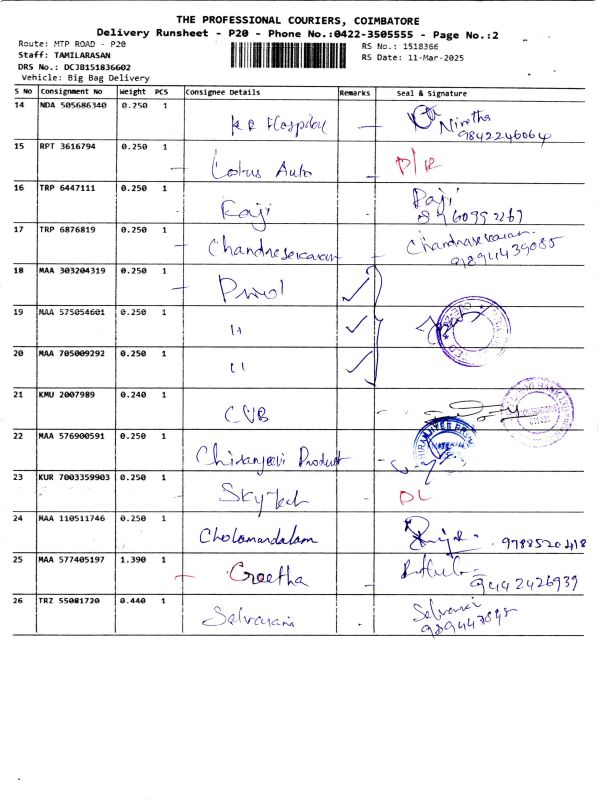 THE PROFESSIONAL COURIERS, COIMBATORE
Delivery Runsheet - P20 - Phone No.:0422-3505555 - Page No.:2
Route: MTP ROAD - P20
RS No.: 1518366
Staff: TAMILARASAN
RS Date: 11-Mar-2025
DRS No.: DCJB151836602
Vehicle: Big Bag Delivery
S No Consignment No Weight PCS Consignee Details Remarks Seal & Signature
14 NDA 505686340 0.250 1 Nivetha
9842246064
15 RPT 3616794 0.250 1 Lotus Auto
16 TRP 6447111 0.250 1 Raji Raji
17 TRP 6876819 0.250 1 Chandrasekaran Chandrasekaran
9894439085
18 MAA 303204319 0.250 1
19 MAA 575054601 0.250 1 "
20 MAA 705009292 0.250 1 "
21 KMU 2007989 0.240 1 CUB
22 MAA 576900591 0.250 1 Chiranjeevi Product
23 KUR 7003359903 0.250 1 Skytech DL
24 MAA 110511746 0.250 1 Cholamandalam 9788520418
25 MAA 577405197 1.390 1 Geetha 9442426939
26 TRZ 55081720 0.440 1 Selvarani Selvarani